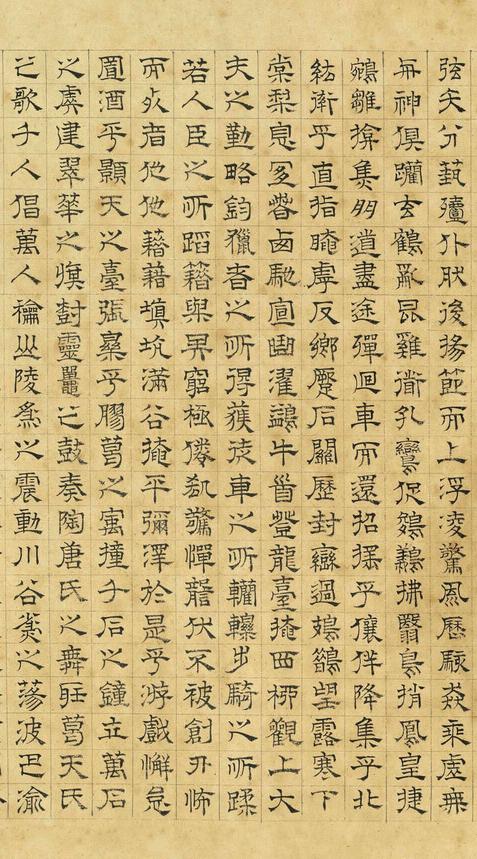 弦矢分藝殪仆肰後揚節而上浮凌驚風歷駭猋乘虛無
與神俱躪玄鶴亂昆雞遒孔鸞促鵔鸃拂翳鳥捎鳳皇捷
鵷雛揜焦朙道盡途殫迴車而還招搖乎儴佯降集乎北
紘率乎直指晻虖反鄉蹷石關歷封巒過鳷鵲望露寒下
棠梨息宜春西馳宣曲濯鷁牛首登龍臺掩西柳觀士大
夫之勤略鈞獵者之所得獲徒車之所轥轢步騎之所蹂
若人臣之所蹈籍與其窮極倦谻驚憚讋伏不被創刃怖
而死者他他藉藉填坑滿谷掩平彌澤於是乎游戲懈怠
置酒乎顥天之臺張樂乎膠葛之寓撞千石之鐘立萬石
之虡建翠華之旗尌靈鼉之鼓奏陶唐氏之舞聽葛天氏
之歌千人倡萬人龢山陵為之震動川谷為之蕩波巴渝